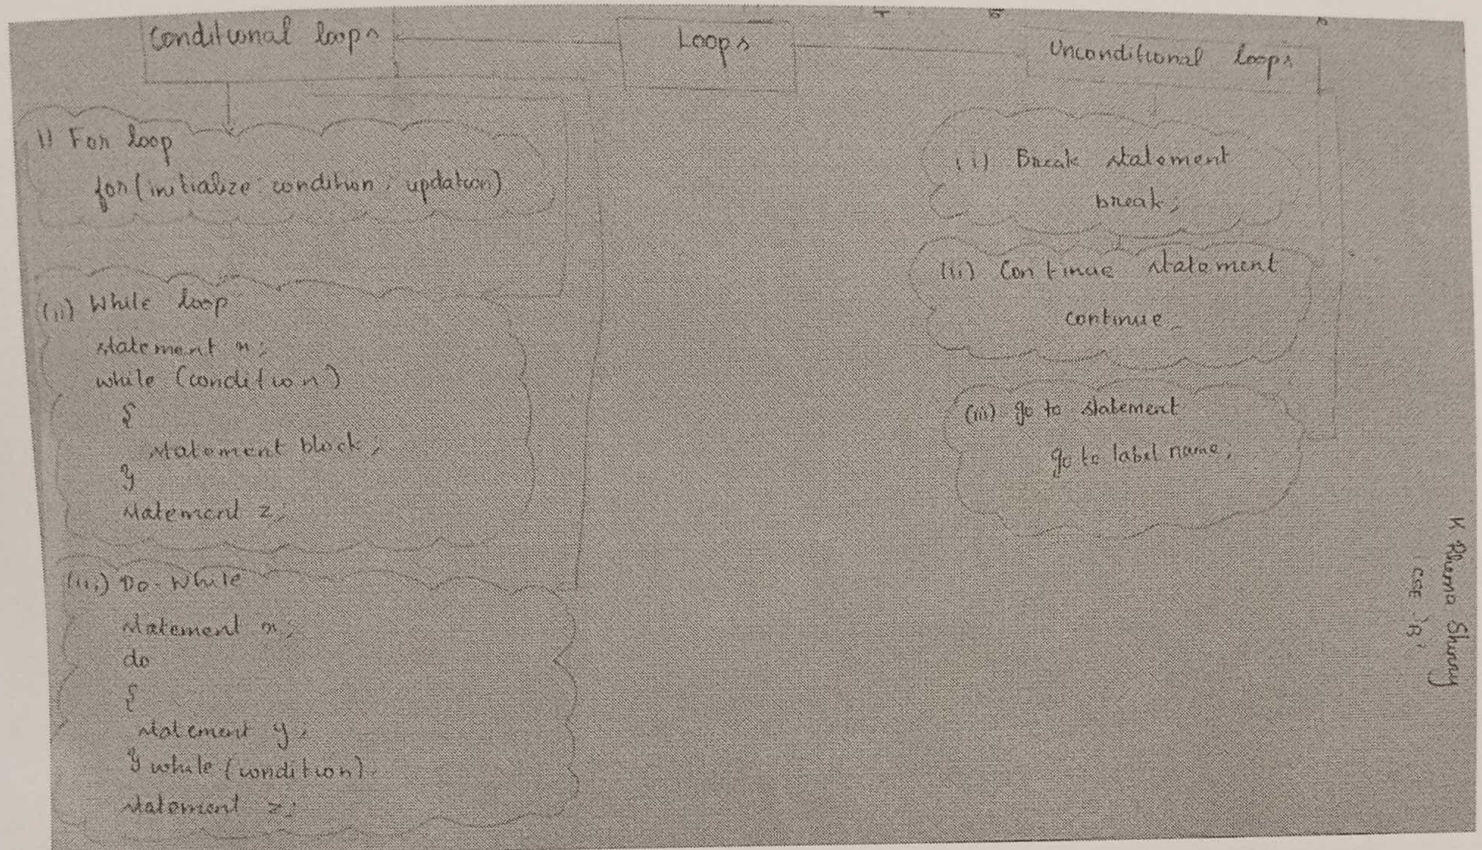 Conditional loops
Loops
Unconditional loops
i) For loop
for (initialize; condition; updation)
(ii) While loop
statement x;
while (condition)
{
statement block;
}
statement z;
(iii) Do-While
statement x;
do
{
statement y;
} while (condition);
statement z;
(i) Break statement
break;
(ii) Continue statement
continue;
(iii) go to statement
go to label name;
K Rhema Shinny
CSE 'B'